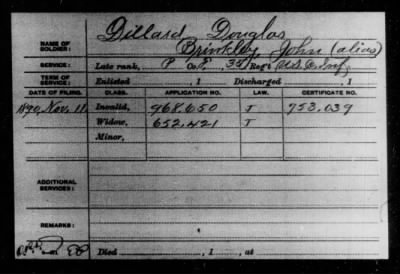 Dillard Douglas
NAME OF SOLDIER: Brinkley, John (alias)
SERVICE: Late rank, P Co. E, 35 Reg't U.S.C. Inf.
TERM OF SERVICE: Enlisted , 1 Discharged , 1
DATE OF FILING. CLASS. APPLICATION NO. LAW. CERTIFICATE NO.
1890, Nov. 11 Invalid, 968.650 J 753.039
Widow, 652.421 J
Minor,
ADDITIONAL SERVICES:
REMARKS:
Died , 1 , at